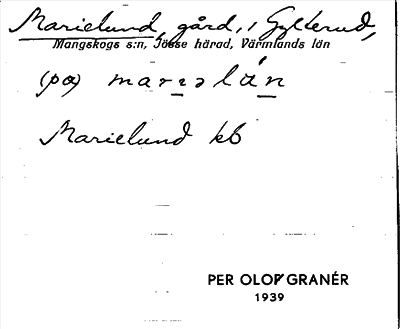 Marielund, gård, i Gylterud,
Mangskogs s:n, Jösse härad, Värmlands län
(pa) marəlán
Marielund kb
PER OLOF GRANÉR
1939